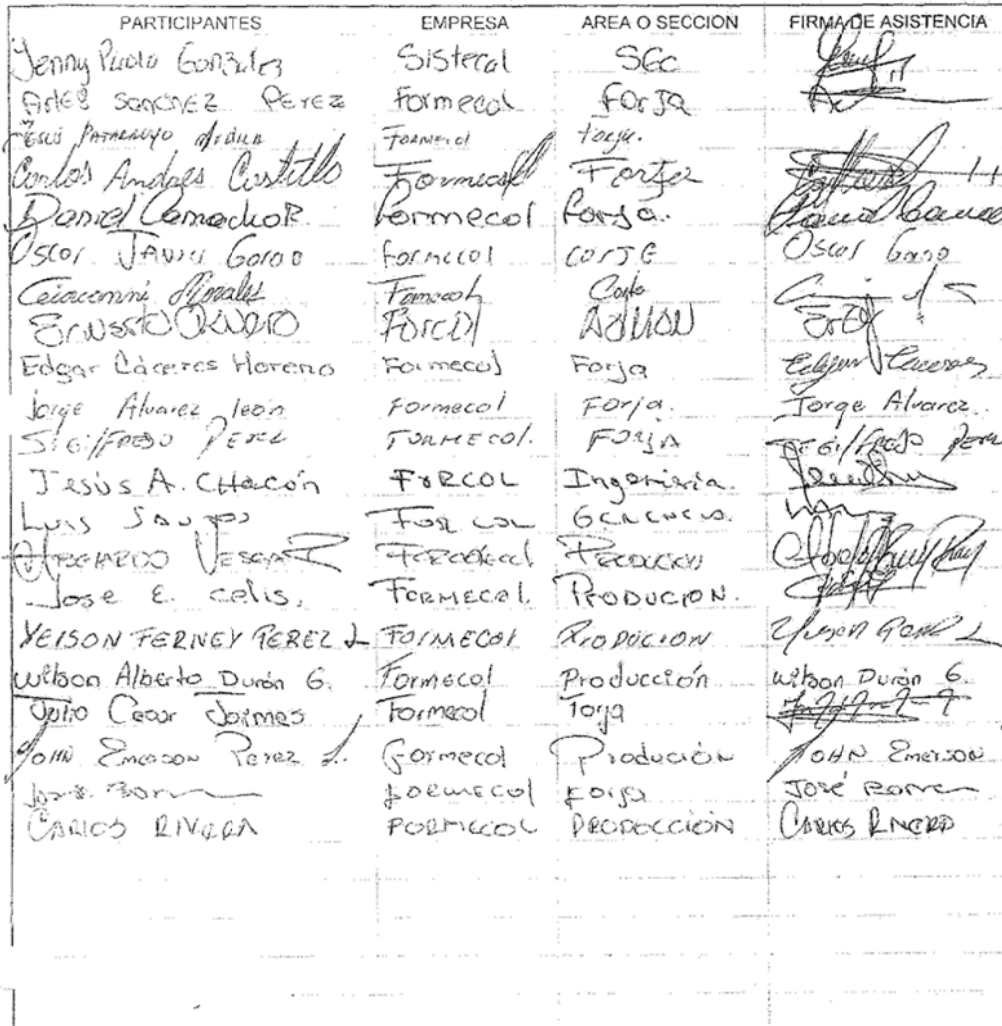 PARTICIPANTES EMPRESA AREA O SECCION FIRMA DE ASISTENCIA
Jenny Paola González Sisteral SGC
Arles Sanchez Perez Formecol Forja
Jesus Formecol Forja.
Carlos Andres Castillo Formecol Forja
Daniel Camacho R. Formecol forja.
Oscar Javier Formecol corte Oscar
Morales Formecol Corte
Ernesto Forcol Admon
Edgar Cáceres Moreno Formecol Forja Edgar Caceres
Jorge Alvarez leon Formecol Forja. Jorge Alvarez
Sigifredo Perez Formecol. Forja Sigifredo Perez
Jesús A. Chacón Forcol Ingenieria.
Luis Forcol Gerencia.
Produccion
Jose E. celis. Formecol. Producion.
Yeison Ferney Perez L Formecol Produccion
Wilson Alberto Durán G. Formecol Producción Wilson Durán G.
Julio Cesar Jaimes Formecol Forja
John Emerson Perez L. Formecol Produción John Emerson
Formecol Forja José
Carlos Rivera Formecol Producción Carlos Rivera